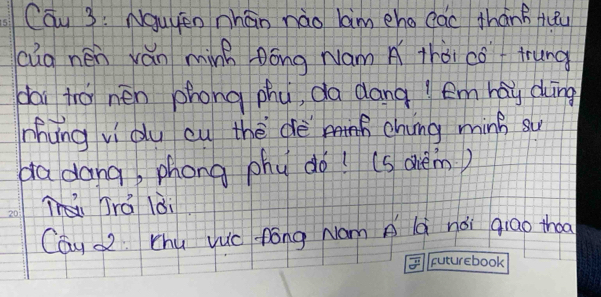 Câu 3: Nguyên nhân nào làm cho các thành tựu
của nền văn minh Đông Nam Á thời cổ - trung
đại trở nên phong phú, đa dạng! Em hãy dùng
những ví dụ cụ thể để chứng minh sự
đa dạng, phong phú đó! (5 điểm)
20 Trả lời
Câu 2: Khu vực Đông Nam Á là nơi giao thoa
Futurebook